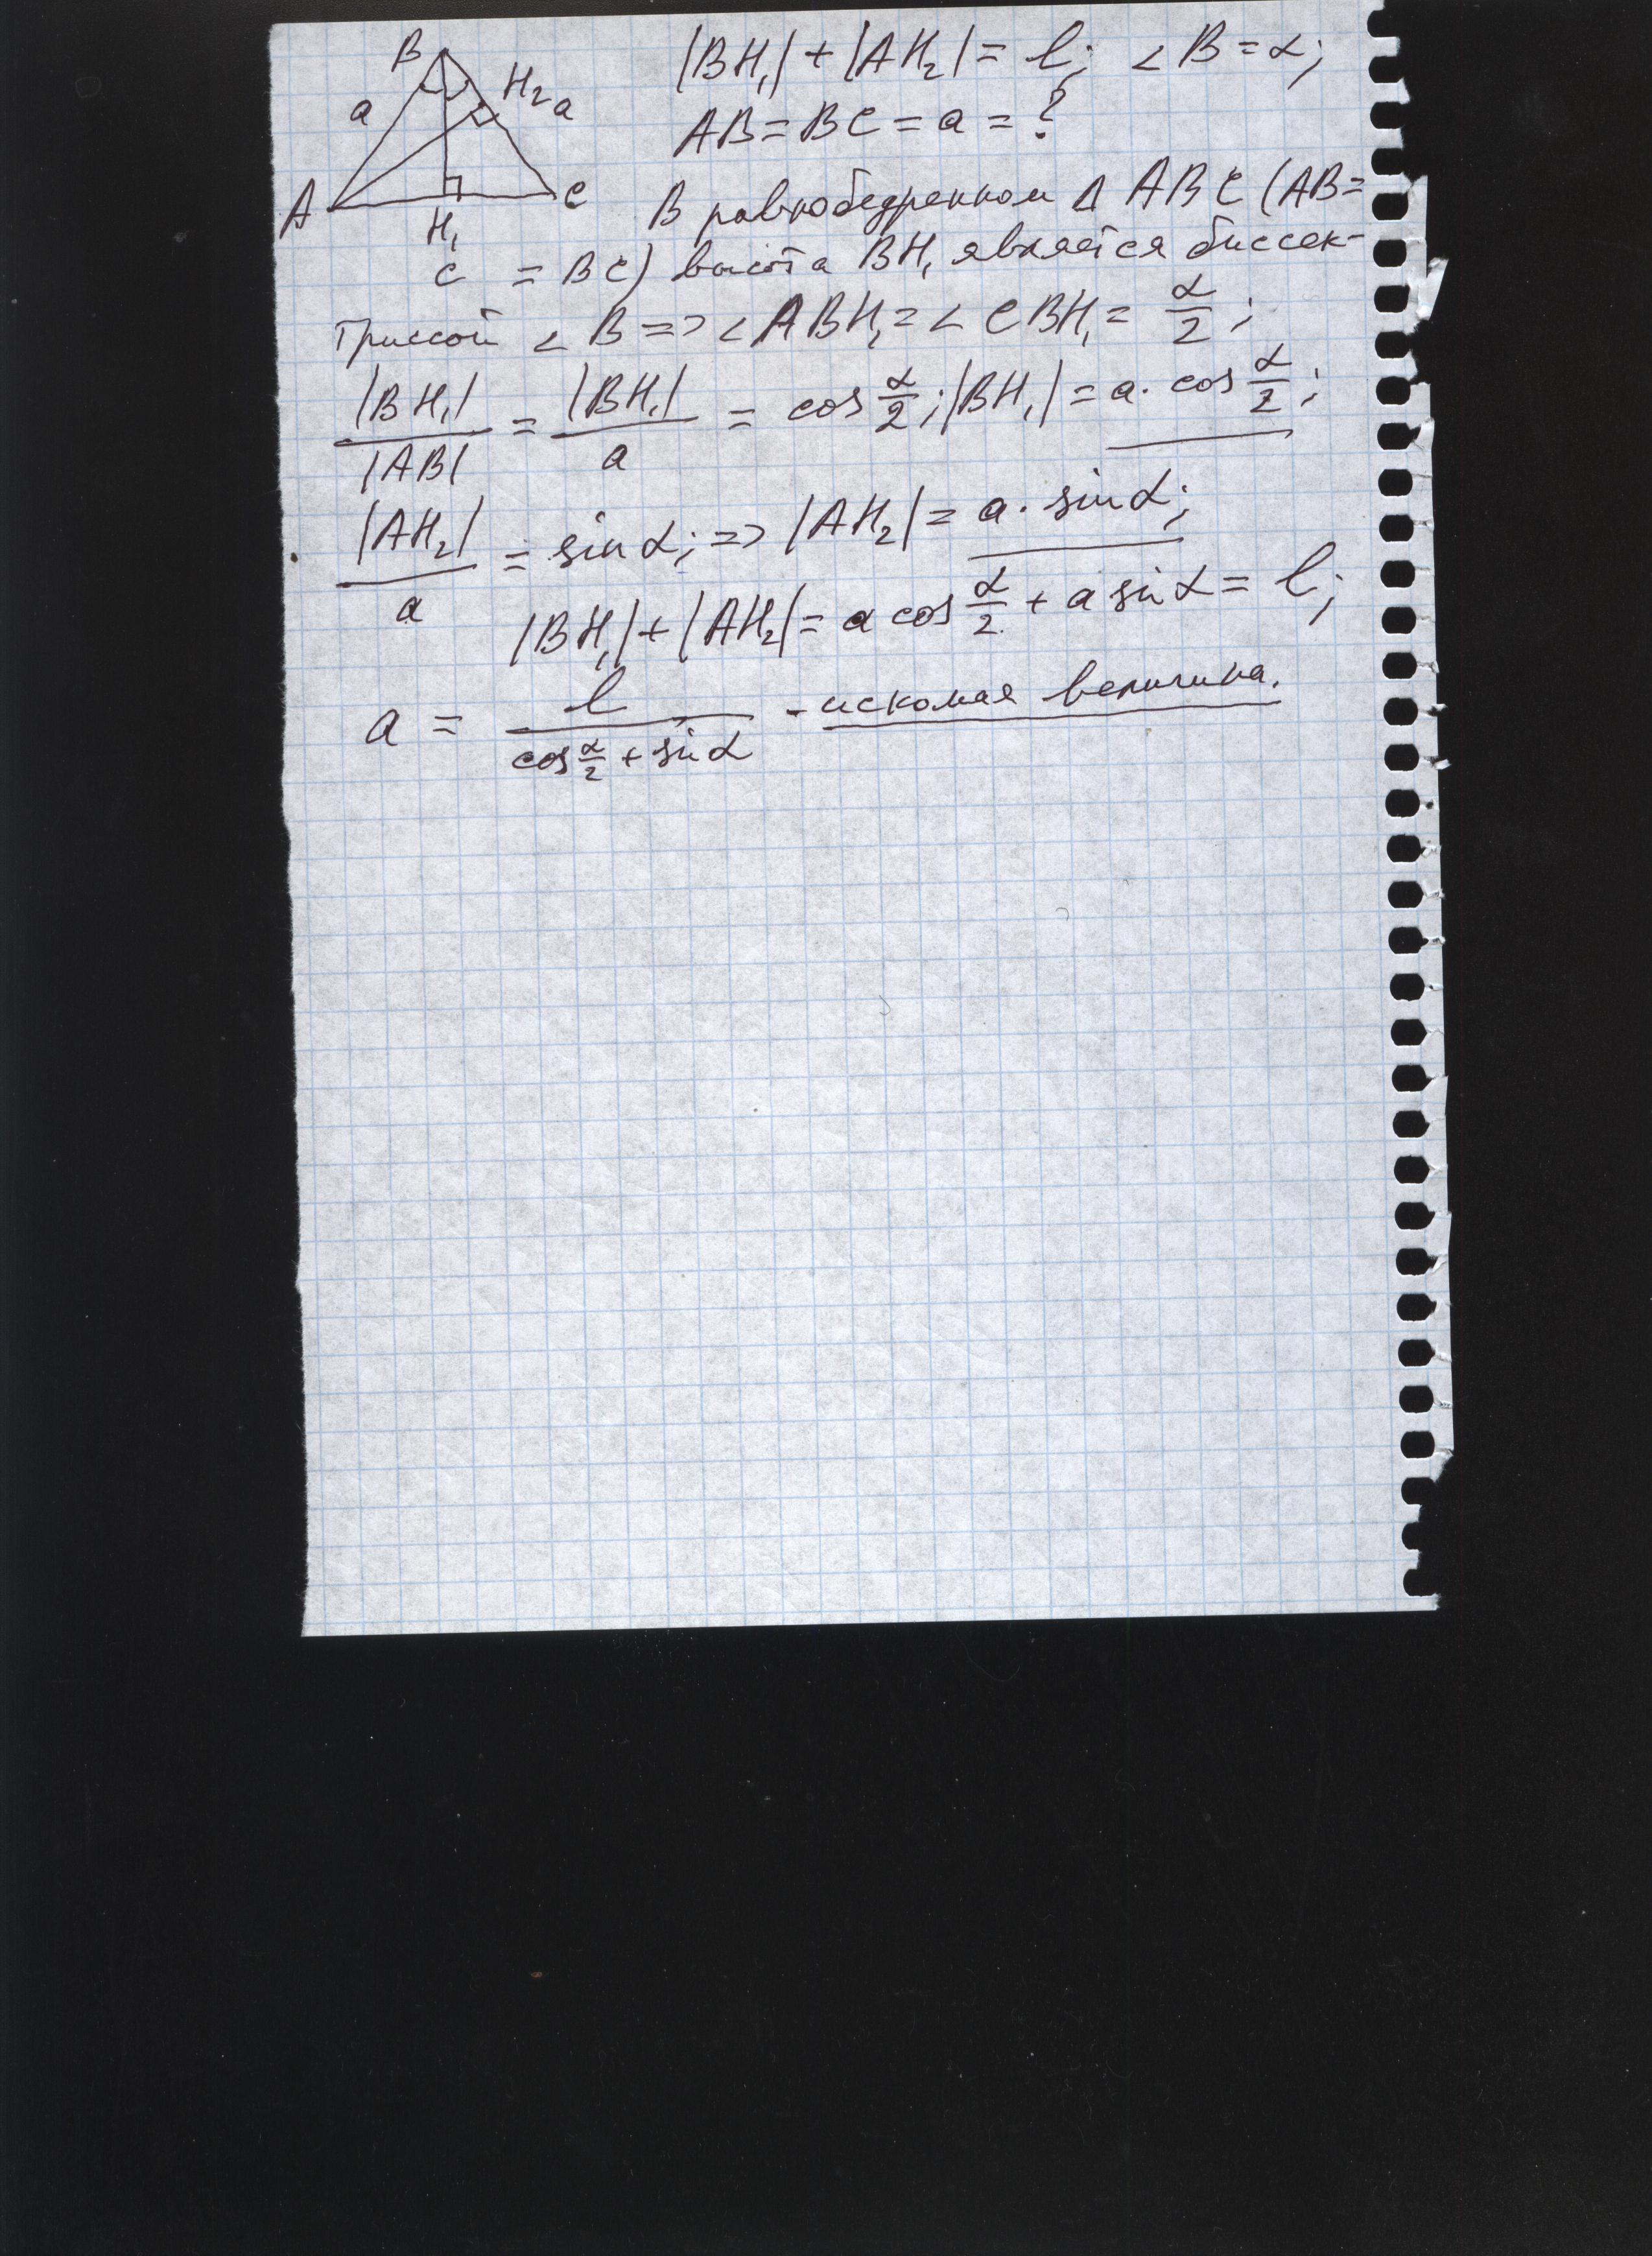 B
a
H₂
a
A
H₁
C
c
|BH₁| + |AH₂| = l; ∠B = α;
AB = BC = a = ?
В равнобедренном Δ ABC (AB =
= BC) высота BH₁ является биссек-
трисой ∠B => ∠ABH₁ = ∠CBH₁ = α/2;
|BH₁|/|AB| = |BH₁|/a = cos α/2; |BH₁| = a · cos α/2;
|AH₂|/a = sin α; => |AH₂| = a · sin α;
|BH₁| + |AH₂| = a cos α/2 + a sin α = l;
a = l/(cos α/2 + sin α) - искомая величина.